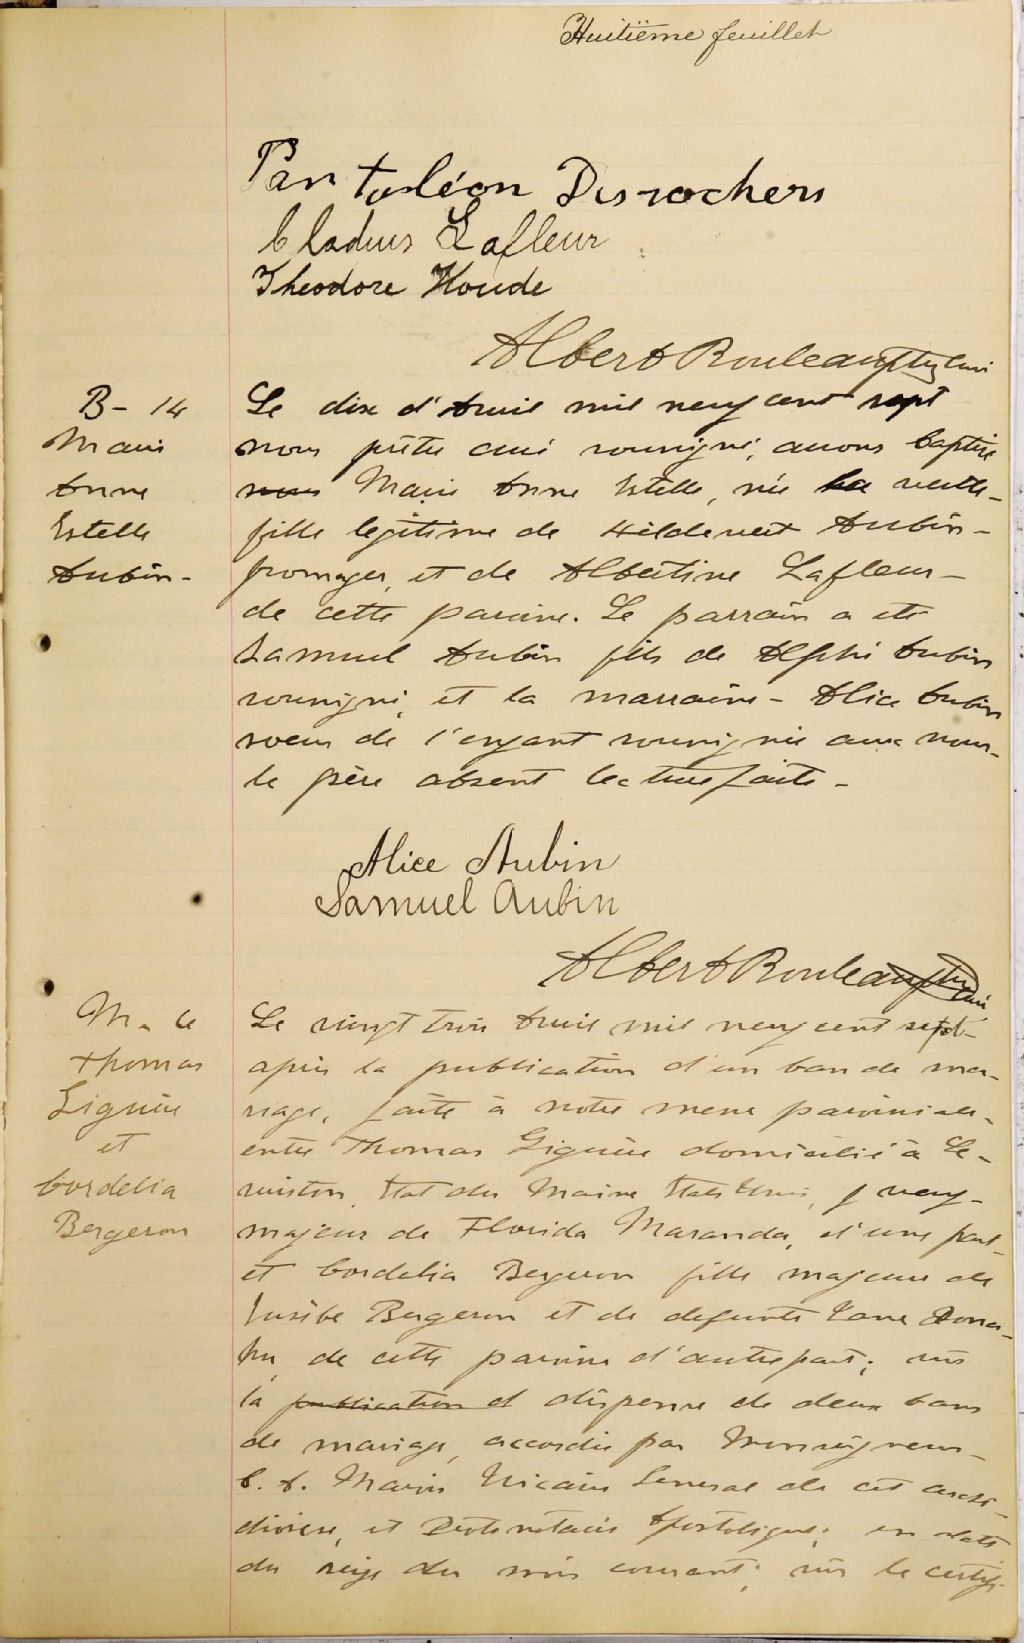 Huitième feuillet
Pantaléon Desrochers
Cladius Lafleur
Theodore Houde
Albert Rouleau ptre curé
B- 14
Marie
Anne
Estelle
Aubin-
Le dix d'Avril mil neuf cent sept
nous prêtre curé soussigné, avons baptisé
Marie Anne Estelle, née la veille-
fille legitime de Aubin-
fromager, et de Albertine Lafleur-
de cette paroisse. Le parrain a été
Samuel Aubin fils de Aubin
soussigné, et la marraine - Alice Aubin
soeur de l'enfant soussignée avec nous-
le père absent lecture faite-
Alice Aubin
Samuel Aubin
Albert Rouleau ptre curé
M- 6
Thomas
Giguère
et
Cordelia
Bergeron
Le vingt trois Avril mil neuf cent sept-
après la publication d'un ban de ma-
riage, faite à notre messe paroissiale-
entre Thomas Giguère domicilié à Le-
wiston, Etat du Maine Etats Unis, veuf-
majeur de Florida Maranda, d'une part-
et Cordelia Bergeron fille majeure de
Eusèbe Bergeron et de defunte
de cette paroisse d'autre part; vu
la publication et dispense de deux bans
de mariage, accordée par Monseigneur-
C. A. Marois Vicaire General de cet archi-
diocèse, et Protonotaire Apostolique; en date
du seize du mois courant; vu le certifi-